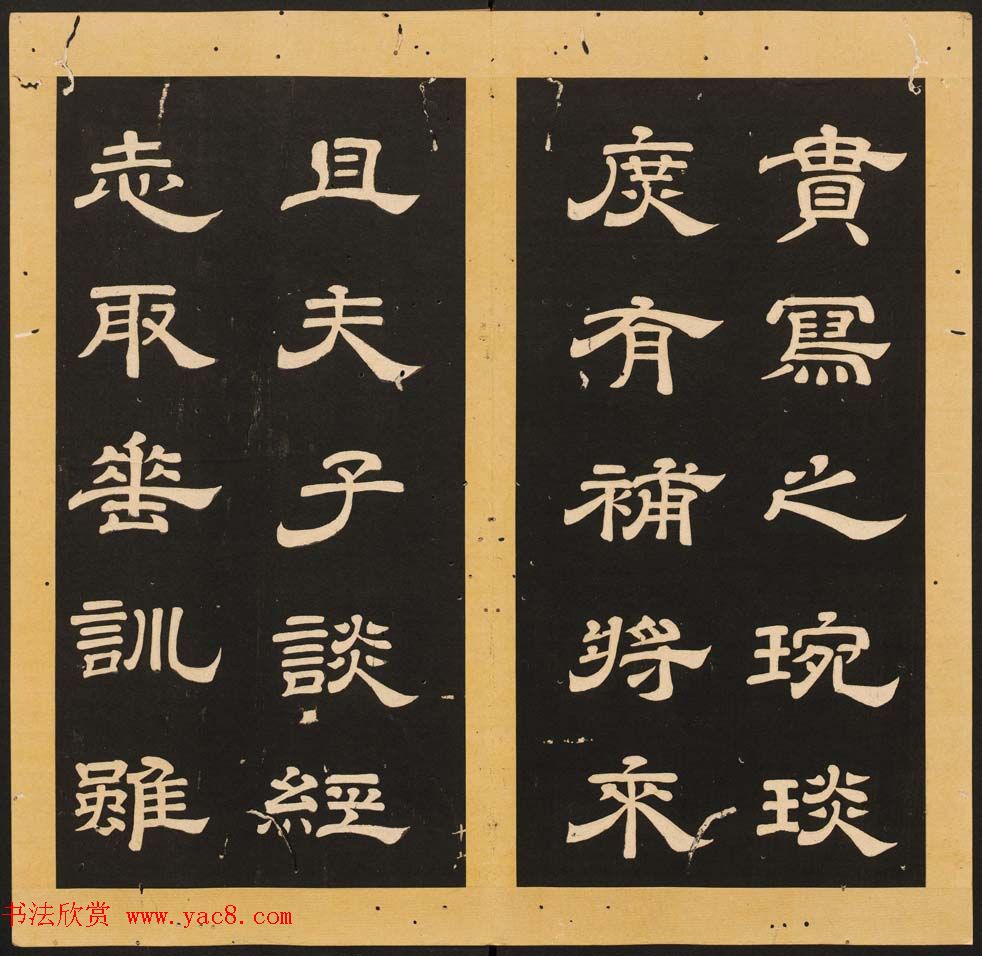 貴寫之琬琰
庶有補將來
且夫子談經
志取垂訓雖
十二
书法欣赏 www.yac8.com